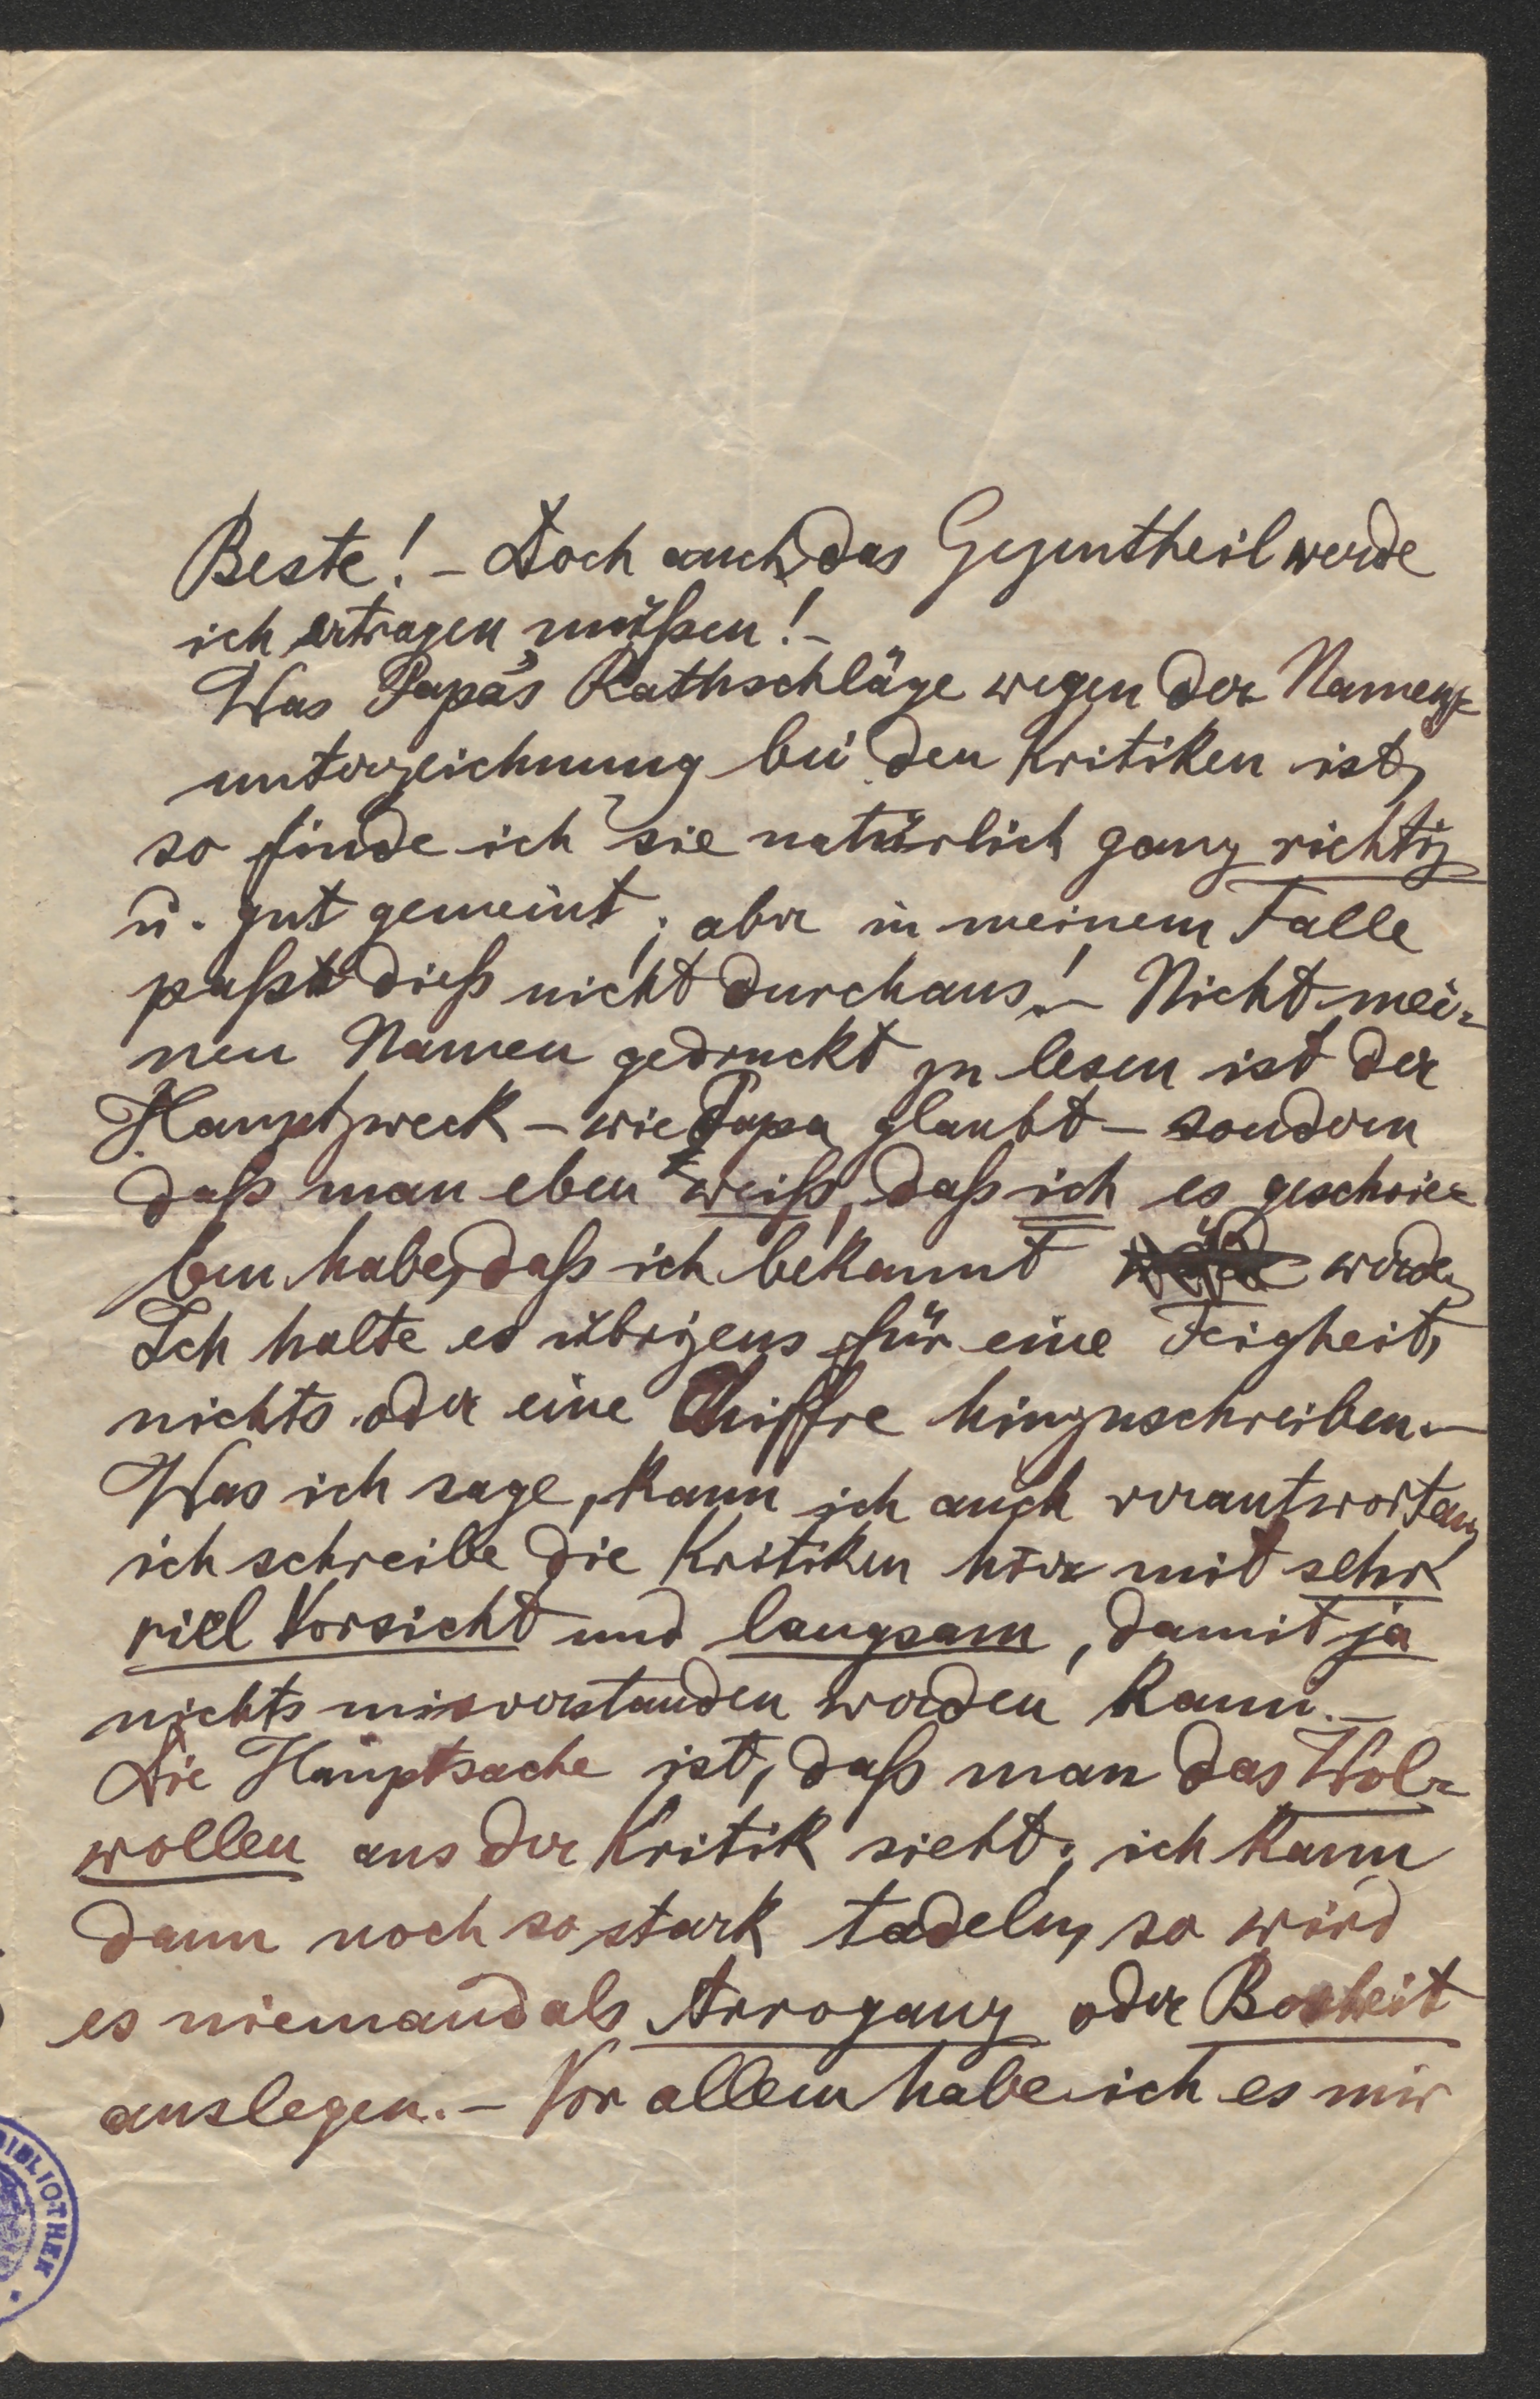 Beste! – Doch auch das Gegentheil werde
ich ertragen müßen! –
Was Papa's Rathschläge wegen der Namens-
unterzeichnung bei den Kritiken ist,
so finde ich sie natürlich ganz richtig
u. gut gemeint; aber in meinem Falle
paßt dieß nicht durchaus! – Nicht mei-
nen Namen gedruckt zu lesen ist der
Hauptzweck – wie Papa glaubt – sondern
daß man eben weiß, daß ich es geschrie-
ben habe, daß ich bekannt werde.
Ich halte es übrigens für eine Feigheit,
nichts oder eine Chiffre hinzuschreiben. –
Was ich sage, kann ich auch verantworten,
ich schreibe die Kritiken hier mit sehr
viel Vorsicht und langsam, damit ja
nichts misverstanden werden kann. –
Die Hauptsache ist, daß man das Wol-
wollen aus der Kritik sieht; ich kann
dann noch so stark tadeln, so wird
es niemand als Arroganz oder Bosheit
auslegen. – Vor allem habe ich es mir
BIBLIOTHEK